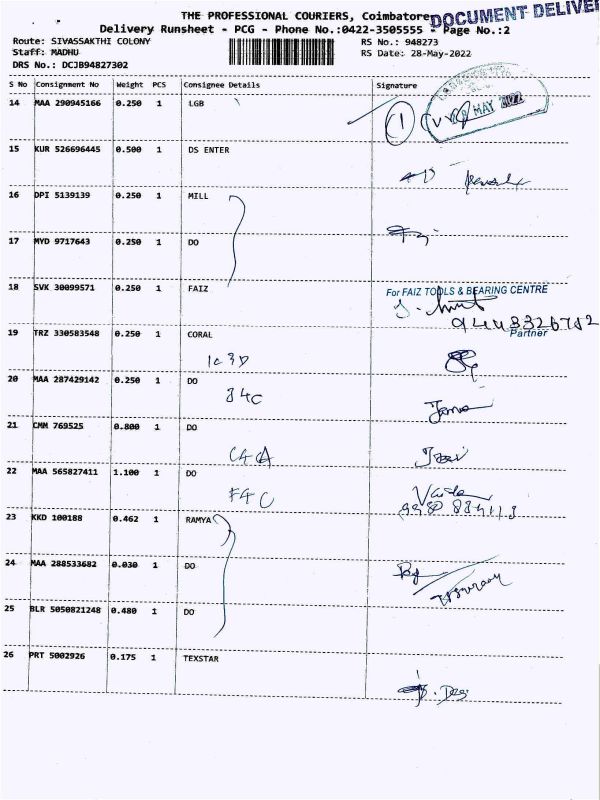 THE PROFESSIONAL COURIERS, Coimbatore
DOCUMENT DELIVE
Delivery Runsheet - PCG - Phone No.:0422-3505555 - Page No.:2
Route: SIVASSAKTHI COLONY
RS No.: 948273
Staff: MADHU
RS Date: 28-May-2022
DRS No.: DCJB94827302
S No Consignment No Weight PCS Consignee Details Signature
14 MAA 290945166 0.250 1 LGB
MAY 2022
15 KUR 526696445 0.500 1 DS ENTER
16 DPI 5139139 0.250 1 MILL
17 MYD 9717643 0.250 1 DO
18 SVK 30099571 0.250 1 FAIZ
For FAIZ TOOLS & BEARING CENTRE
Partner
19 TRZ 330583548 0.250 1 CORAL
1C3D
20 MAA 287429142 0.250 1 DO
34C
21 CMM 769525 0.800 1 DO
C4A
22 MAA 565827411 1.100 1 DO
F4C
23 KKD 100188 0.462 1 RAMYA
24 MAA 288533682 0.030 1 DO
25 BLR 5050821248 0.480 1 DO
26 PRT 5002926 0.175 1 TEXSTAR